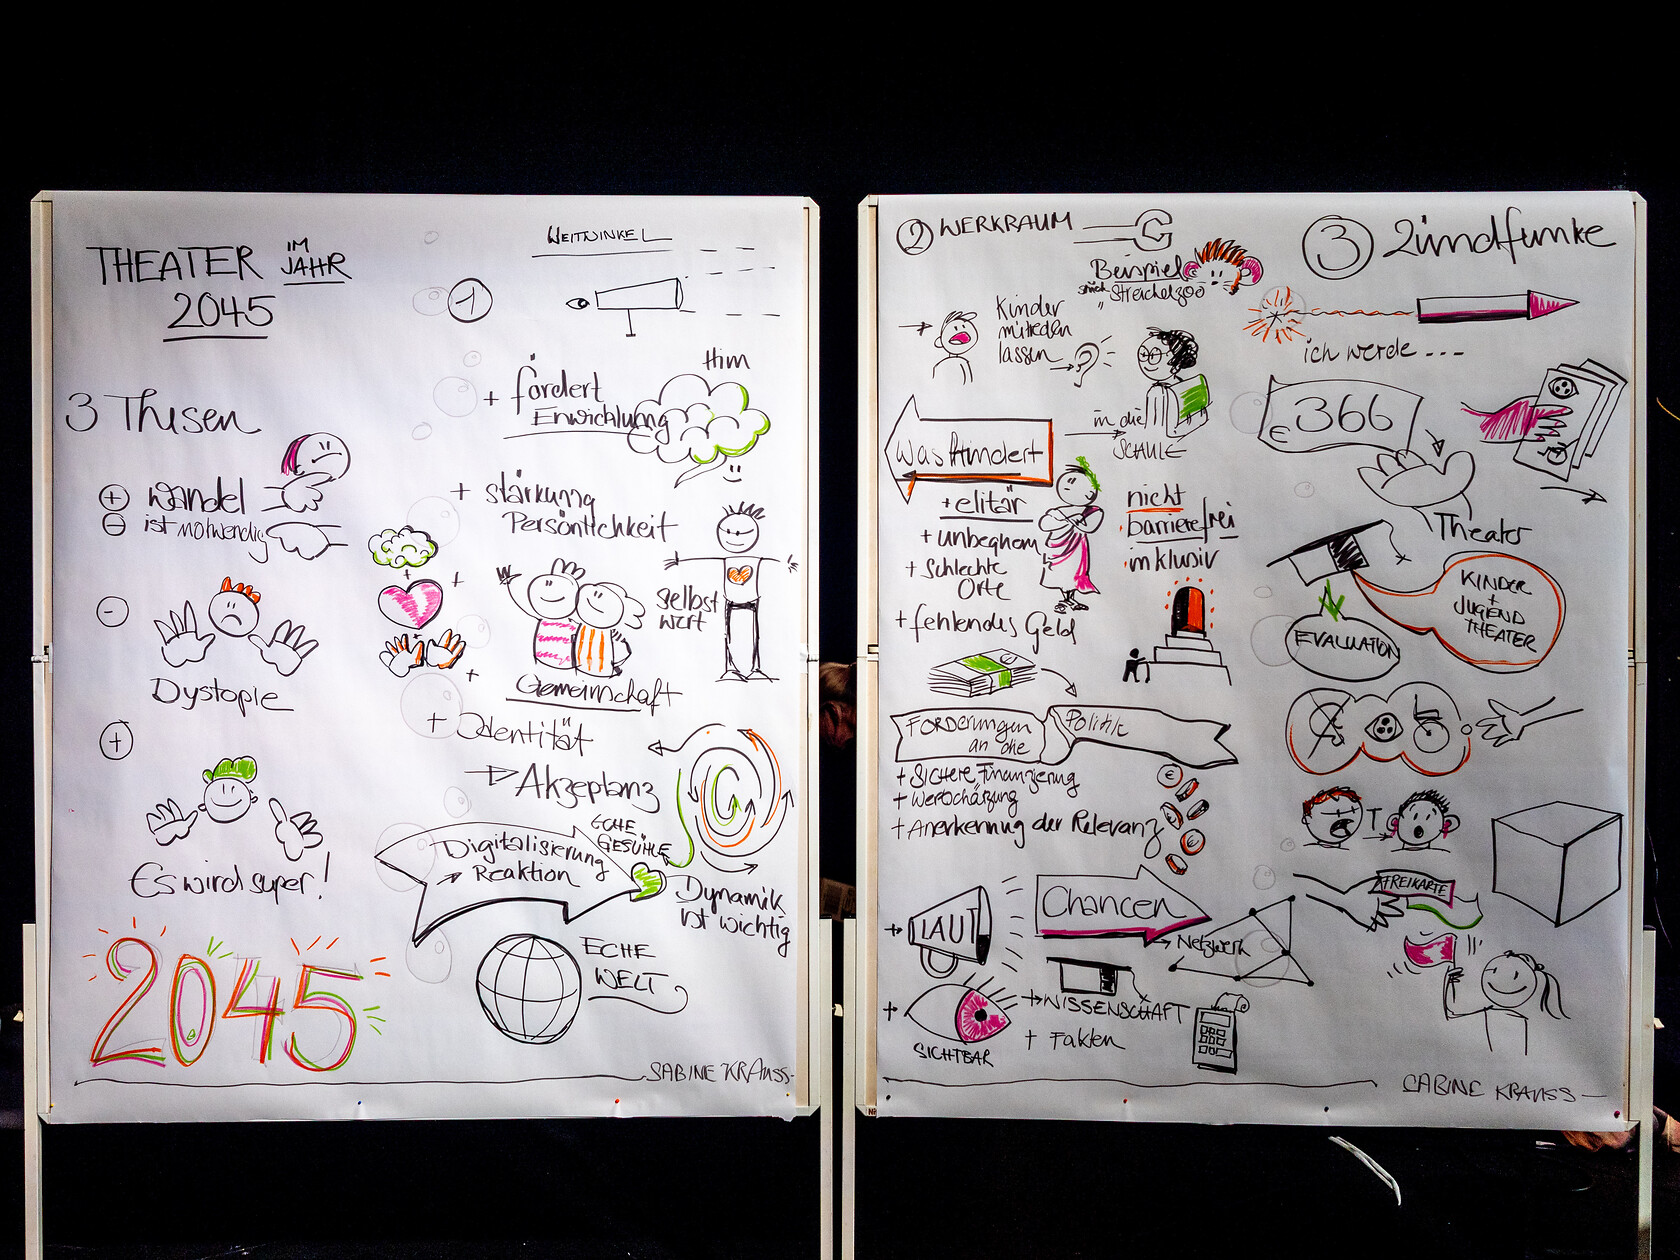 THEATER IM JAHR
2045
3 Thesen
⊕ wandel
⊖ ist notwendig
-
Dystopie
+
Es wird super!
2045
1
WEITWINKEL
+ fördert
Enwicklung
Hirn
+ stärkung
Persönlichkeit
selbst
wert
+
+
+
+
Gemeinschaft
+ Identität
→ Akzeptanz
Digitalisierung
→ Reaktion
ECHE
GEFÜHLE
Dynamik
ist wichtig
ECHE
WELT
SABINE KRAUSS-
2 WERKRAUM
Beispiel
"Streichelzoo
Kinder
mitreden
lassen
in die
SCHULE
Was hindert
+ elitär
+ unbequem
+ Schlechte
Orte
+ fehlendes Geld
nicht
barrierefrei
inklusiv
€
FORDERUNGEN
an die
Politik
+ SICHERE Finanzierung
+ Wertschäzung
+ Anerkennung der Relevanz
€
€
€
+ LAUT
+
SICHTBAR
Chancen
→ Netzwerk
→ WISSENSCHAFT
+ Fakten
3 Zündfunke
ich werde ...
€ 366
Theater
EVALUATION
KINDER
+
JUGEND
THEATER
FREIKARTE
SABINE KRAUSS —